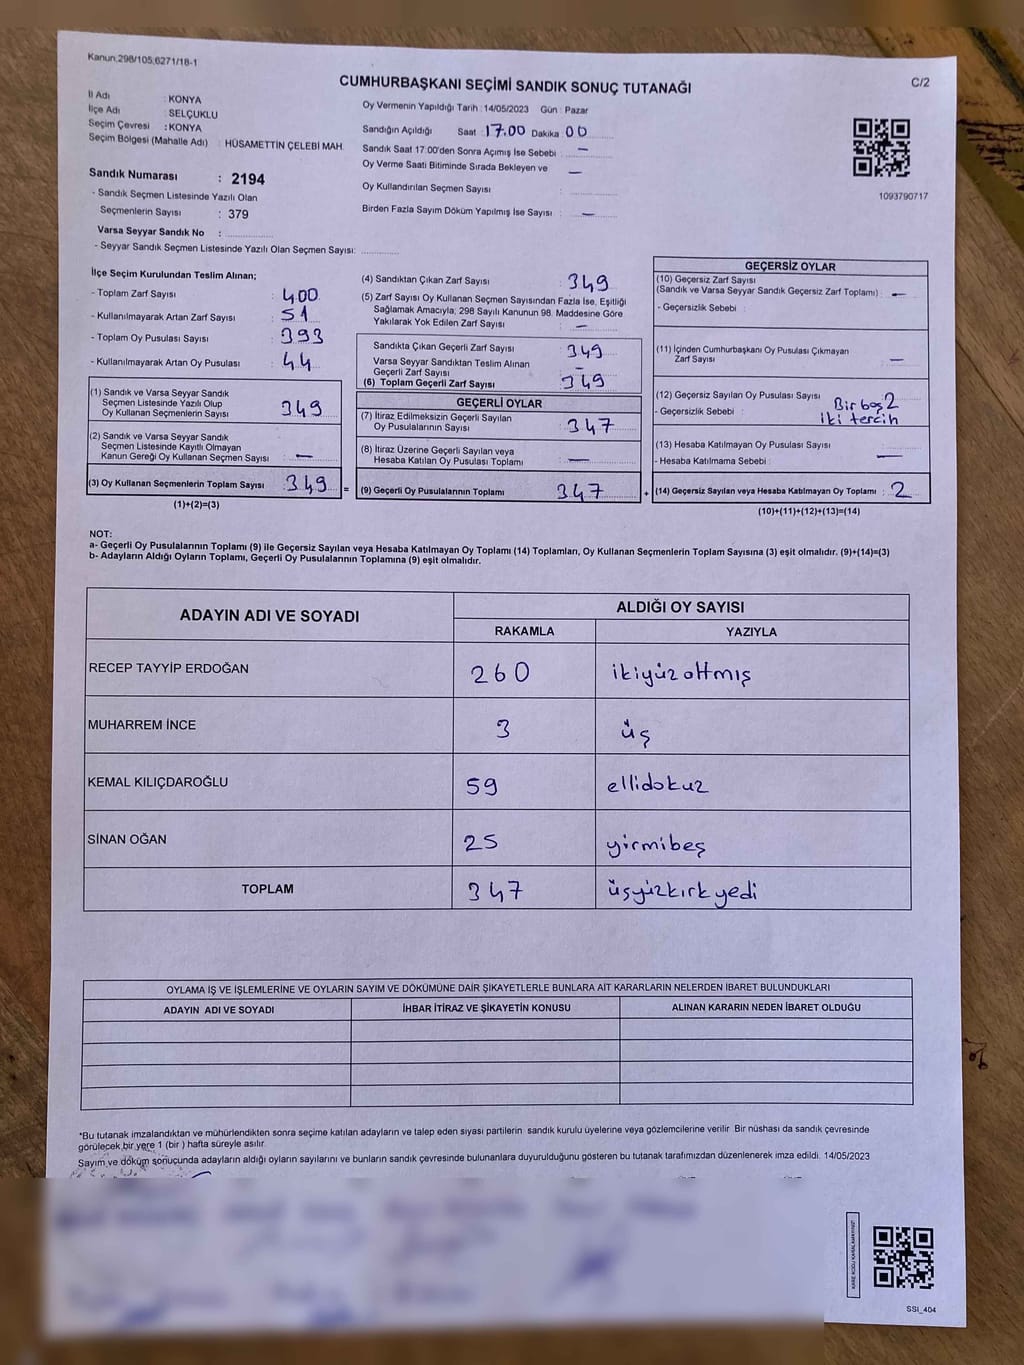 Kanun,298/105,6271/18-1
CUMHURBAŞKANI SEÇİMİ SANDIK SONUÇ TUTANAĞI
C/2
İl Adı : KONYA
İlçe Adı : SELÇUKLU
Seçim Çevresi : KONYA
Seçim Bölgesi (Mahalle Adı) : HÜSAMETTİN ÇELEBİ MAH.
Sandık Numarası : 2194
- Sandık Seçmen Listesinde Yazılı Olan
Seçmenlerin Sayısı : 379
Varsa Seyyar Sandık No :
- Seyyar Sandık Seçmen Listesinde Yazılı Olan Seçmen Sayısı:
Oy Vermenin Yapıldığı Tarih : 14/05/2023 Gün : Pazar
Sandığın Açıldığı Saat 17.00 Dakika 00
Sandık Saat 17:00'den Sonra Açımış İse Sebebi : —
Oy Verme Saati Bitiminde Sırada Bekleyen ve —
Oy Kullandırılan Seçmen Sayısı :
Birden Fazla Sayım Döküm Yapılmış İse Sayısı : —
1093790717
İlçe Seçim Kurulundan Teslim Alınan;
- Toplam Zarf Sayısı : 400
- Kullanılmayarak Artan Zarf Sayısı : 51
- Toplam Oy Pusulası Sayısı : 393
- Kullanılmayarak Artan Oy Pusulası : 44
(1) Sandık ve Varsa Seyyar Sandık
Seçmen Listesinde Yazılı Olup
Oy Kullanan Seçmenlerin Sayısı : 349
(2) Sandık ve Varsa Seyyar Sandık
Seçmen Listesinde Kayıtlı Olmayan
Kanun Gereği Oy Kullanan Seçmen Sayısı : —
(3) Oy Kullanan Seçmenlerin Toplam Sayısı : 349 =
(1)+(2)=(3)
(4) Sandıktan Çıkan Zarf Sayısı : 349
(5) Zarf Sayısı Oy Kullanan Seçmen Sayısından Fazla İse, Eşitliği
Sağlamak Amacıyla; 298 Sayılı Kanunun 98. Maddesine Göre
Yakılarak Yok Edilen Zarf Sayısı : —
Sandıkta Çıkan Geçerli Zarf Sayısı : 349
Varsa Seyyar Sandıktan Teslim Alınan
Geçerli Zarf Sayısı : —
(6) Toplam Geçerli Zarf Sayısı : 349
GEÇERLİ OYLAR
(7) İtiraz Edilmeksizin Geçerli Sayılan
Oy Pusulalarının Sayısı : 347
(8) İtiraz Üzerine Geçerli Sayılan veya
Hesaba Katılan Oy Pusulası Toplamı : —
(9) Geçerli Oy Pusulalarının Toplamı : 347 +
GEÇERSİZ OYLAR
(10) Geçersiz Zarf Sayısı
(Sandık ve Varsa Seyyar Sandık Geçersiz Zarf Toplamı) : —
- Geçersizlik Sebebi :
(11) İçinden Cumhurbaşkanı Oy Pusulası Çıkmayan
Zarf Sayısı : —
(12) Geçersiz Sayılan Oy Pusulası Sayısı : 2
- Geçersizlik Sebebi : Bir boş
iki tercih
(13) Hesaba Katılmayan Oy Pusulası Sayısı : —
- Hesaba Katılmama Sebebi :
(14) Geçersiz Sayılan veya Hesaba Katılmayan Oy Toplamı : 2
(10)+(11)+(12)+(13)=(14)
NOT:
a- Geçerli Oy Pusulalarının Toplamı (9) ile Geçersiz Sayılan veya Hesaba Katılmayan Oy Toplamı (14) Toplamları, Oy Kullanan Seçmenlerin Toplam Sayısına (3) eşit olmalıdır. (9)+(14)=(3)
b- Adayların Aldığı Oyların Toplamı, Geçerli Oy Pusulalarının Toplamına (9) eşit olmalıdır.
ADAYIN ADI VE SOYADI ALDIĞI OY SAYISI
RAKAMLA YAZIYLA
RECEP TAYYİP ERDOĞAN 260 ikiyüz altmış
MUHARREM İNCE 3 üş
KEMAL KILIÇDAROĞLU 59 ellidokuz
SİNAN OĞAN 25 yirmibeş
TOPLAM 347 üşyüzkırkyedi
OYLAMA İŞ VE İŞLEMLERİNE VE OYLARIN SAYIM VE DÖKÜMÜNE DAİR ŞİKAYETLERLE BUNLARA AİT KARARLARIN NELERDEN İBARET BULUNDUKLARI
ADAYIN ADI VE SOYADI İHBAR İTİRAZ VE ŞİKAYETİN KONUSU ALINAN KARARIN NEDEN İBARET OLDUĞU
*Bu tutanak imzalandıktan ve mühürlendikten sonra seçime katılan adayların ve talep eden siyasi partilerin sandık kurulu üyelerine veya gözlemcilerine verilir. Bir nüshası da sandık çevresinde
görülecek bir yere 1 (bir ) hafta süreyle asılır.
Sayım ve döküm sonucunda adayların aldığı oyların sayılarını ve bunların sandık çevresinde bulunanlara duyurulduğunu gösteren bu tutanak tarafımızdan düzenlenerek imza edildi. 14/05/2023
SSI_404